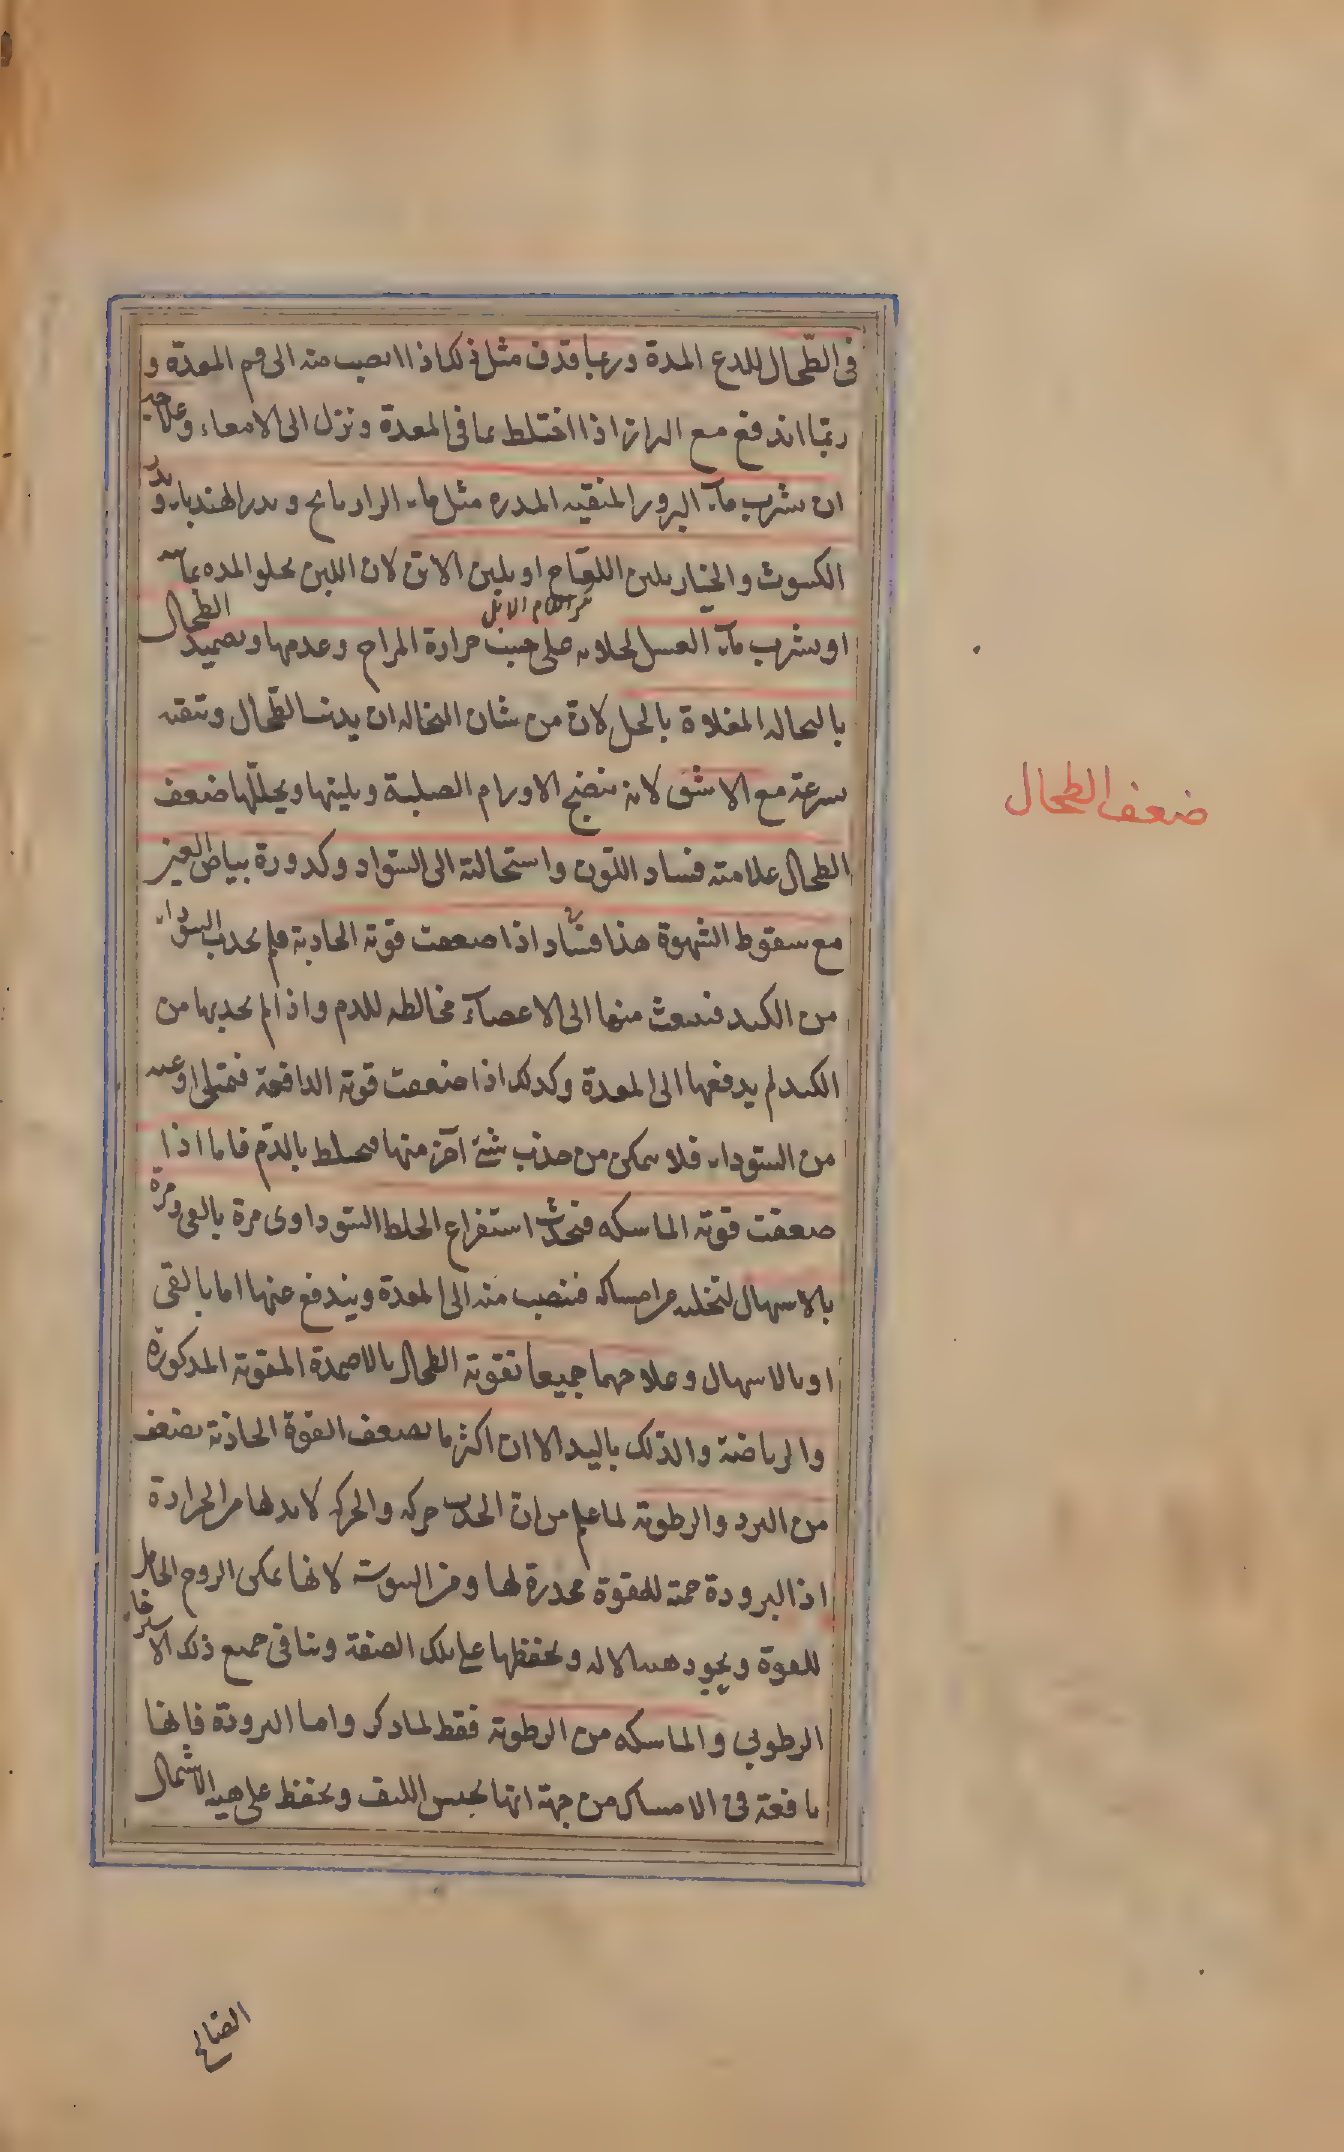 فى الطّحال للدع المدة وربما قذف مثل ذلك اذا انصب منه الى فم المعدة و
ربّما اندفع مع البراز اذا اختلط بما فى المعدة ونزل الى الامعاء وعلاجه
ان يشرب ماء البزور المنقيه المدره مثل ماء الرازيانج وبذر الهندباء وبذر
الكسوث والخيار بلبن اللقاح او بلبن الاتن لان اللبن يجلو المده بمائيته
او يشرب ماء العسل لجلائه على حسب حرارة المزاج وعدمها ويضمد الطحال
بالنخاله المغلاة بالخل لان من شان النخاله ان يدنسا الطّحال وتنقيه
سرعة مع الاشق لانه ينضج الاورام الصلبة ويلينها ويحلّلها ضعف
ضعف الطحال
الطحال علامته فساد اللّون واستحالته الى السّواد وكدورة بياض العين
مع سقوط الشهوة هذا فساد اذا ضعفت قوته الجاذبة فلم يجذب السوداء
من الكبد فتنبعث منها الى الاعضاء مخالطه للدم واذا لم يجذبها من
الكبد لم يدفعها الى المعدة وكذلك اذا ضعفت قوته الدافعة فتمتلى اوعيته
من السّوداء فلا يتمكن من جذب شئ آخر منها فيختلط بالدّم فاما اذا
ضعفت قوته الماسكه فيحدث استفراغ الخلط السّوداوى مرة بالقى ومرة
بالاسهال لتخليه عن امساكه فتنصب منه الى المعدة ويندفع عنها اما بالقى
او بالاسهال وعلاجهما جميعا تقوية الطحال بالاضمدة المقوية المذكورة
والرياضة والدلك باليد الا ان اكثر ما يضعف القوة الجاذبة يضعف
من البرد والرطوبة لما علم من ان الجذب حركه والحركه لا بد لها من الحرارة
اذ البرودة مميتة للقوة مخدرة لها ومن اليبوسة لانها تمكن الروح الحامل
للقوة ويجود هيئة الاله ويحفظها على تلك الصفة وينافى جميع ذلك الاسترخاء
الرطوبى والماسكه من الرطوبة فقط لما ذكر واما البرودة فانها
نافعة فى الامساك من جهة انها تحبس الليف وتحفظ على هيئة الاشتمال
الصالح